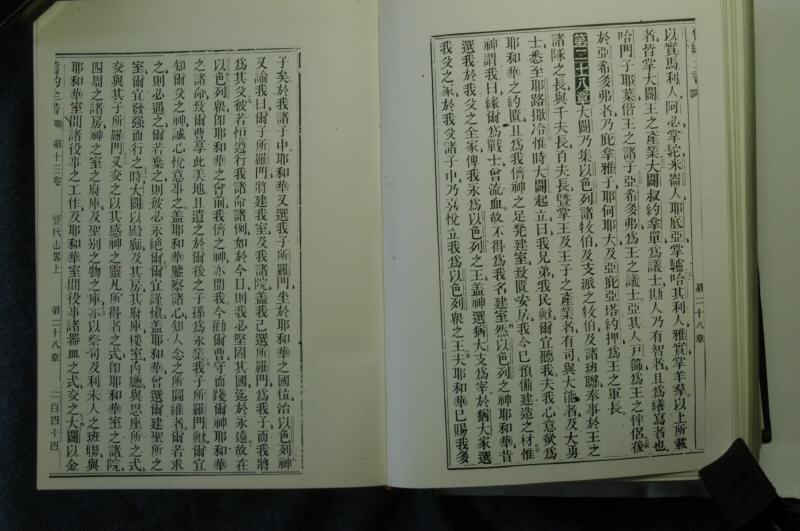 以實馬利人阿必掌駝米崙人耶底亞掌驢哈其利人雅實掌羊羣以上所載
者皆掌大闢王之產業大闢叔約拿單爲議士斯人乃有智者且爲繕寫者也
哈門子耶葉偕王之諸子亞希多弗爲王之議士亞其人戶篩爲王之伴侶後
於亞希多弗者乃庇拿雅子耶何耶大及亞庇亞塔約押爲王之軍長
第二十八章大闢乃集以色列諸牧伯及支派之牧伯及諸班聯奉事於王之
諸隊之長與千夫長百夫長曁掌王及王子之產業者有司與大能者及大勇
士悉至耶路撒冷惟時大闢起立曰我兄弟我民歟爾宜聽我夫我心意欲爲
耶和華之約匱且爲我儕神之足凳建室致置安居我今已預備建造之材惟
神謂我曰緣爾爲戰士曾流血故不得爲我名建室然以色列之神耶和華昔
選我於我父之全家俾我永爲以色列之王蓋神選猶大支爲宰於猶大家選
我父之家於我父諸子中乃喜悅立我爲以色列衆之王夫耶和華已賜我多
第二十八章
子矣於我諸子中耶和華又選我子所羅門坐於耶和華之國位治以色列神
又諭我曰爾子所羅門將建我室及我諸院蓋我已選所羅門爲我子而我將
爲其父彼若恒遵行我諸命諸例如於今日則我必堅固其國迄於永遠故在
以色列衆卽耶和華之會前我儕之神亦聞我今勸爾曹守而踐爾神耶和華
之諸命致爾曹享此美地且遺之於爾後之子孫爲永業我子所羅門歟爾宜
知爾父之神誠心悅意事之蓋耶和華鑒察諸心知人念之所圖維者爾若求
之則必遇之爾若棄之則彼必永絕爾爾宜謹愼蓋耶和華曾選爾建聖所之
室爾宜發强而行之時大闢以殿廊及其房其府庫樓室內廳與恩座所之式
交與其子所羅門又交之以其感神之靈凡所得者之式卽耶和華室之諸院
四周之諸房神之室之府庫及聖别之物之庫亦以祭司及利未人之班聯與
耶和華室間諸役事之工作及耶和華室間役事諸器皿之式交之大闢以金
舊約全書
第十三卷
歷代志畧上
第二十八章
二百四十四